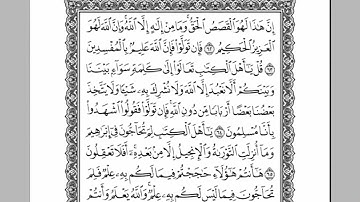 إِنَّ هَٰذَا لَهُوَ ٱلْقَصَصُ ٱلْحَقُّ وَمَا مِنْ إِلَٰهٍ إِلَّا ٱللَّهُ وَإِنَّ ٱللَّهَ لَهُوَ
ٱلْعَزِيزُ ٱلْحَكِيمُ ٦٢ فَإِن تَوَلَّوْا۟ فَإِنَّ ٱللَّهَ عَلِيمٌۢ بِٱلْمُفْسِدِينَ
٦٣ قُلْ يَٰٓأَهْلَ ٱلْكِتَٰبِ تَعَالَوْا۟ إِلَىٰ كَلِمَةٍ سَوَآءٍۭ بَيْنَنَا
وَبَيْنَكُمْ أَلَّا نَعْبُدَ إِلَّا ٱللَّهَ وَلَا نُشْرِكَ بِهِۦ شَيْـًٔا وَلَا يَتَّخِذَ
بَعْضُنَا بَعْضًا أَرْبَابًا مِّن دُونِ ٱللَّهِ فَإِن تَوَلَّوْا۟ فَقُولُوا۟ ٱشْهَدُوا۟
بِأَنَّا مُسْلِمُونَ ٦٤ يَٰٓأَهْلَ ٱلْكِتَٰبِ لِمَ تُحَآجُّونَ فِىٓ إِبْرَٰهِيمَ
وَمَآ أُنزِلَتِ ٱلتَّوْرَىٰةُ وَٱلْإِنجِيلُ إِلَّا مِنۢ بَعْدِهِۦٓ أَفَلَا تَعْقِلُونَ
٦٥ هَٰٓأَنتُمْ هَٰٓؤُلَآءِ حَٰجَجْتُمْ فِيمَا لَكُم بِهِۦ عِلْمٌ فَلِمَ
تُحَآجُّونَ فِيمَا لَيْسَ لَكُم بِهِۦ عِلْمٌ وَٱللَّهُ يَعْلَمُ وَأَنتُمْ